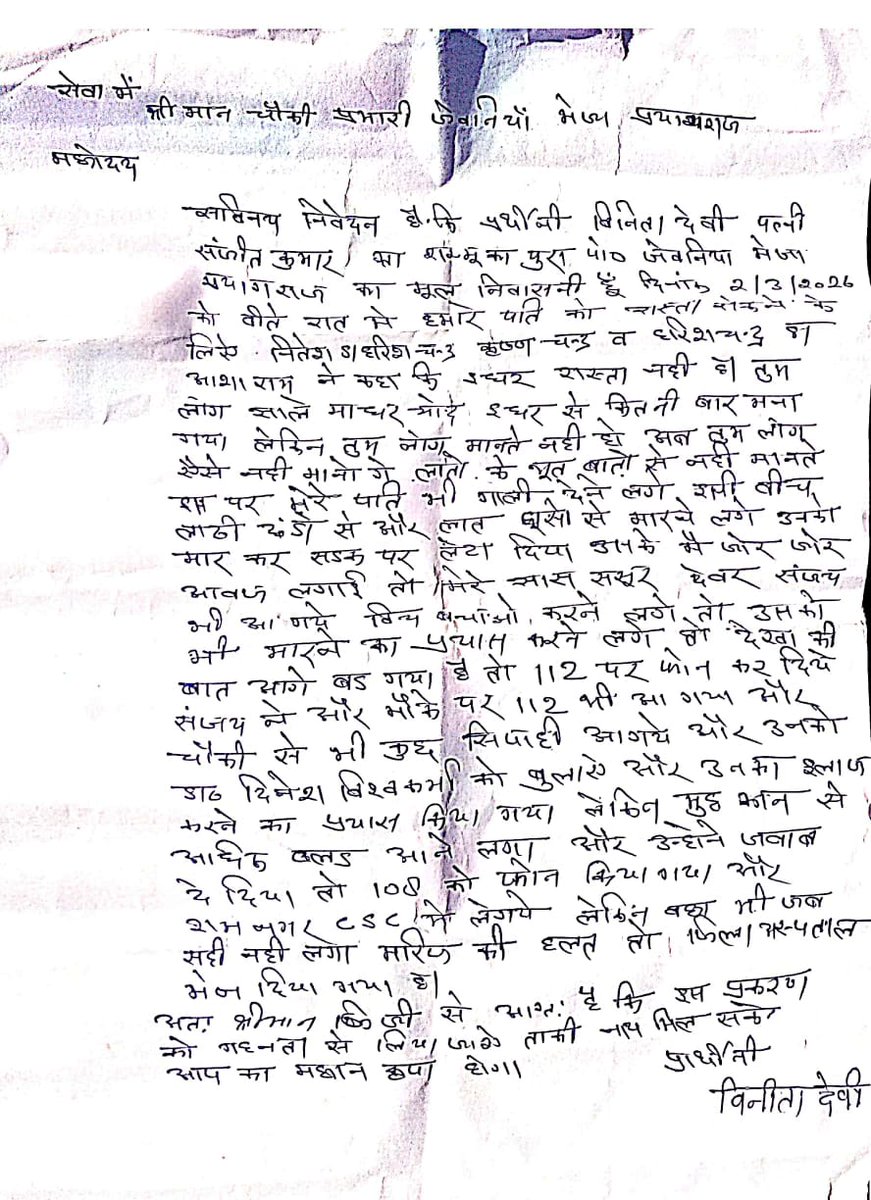 सेवा में
श्री मान चौकी प्रभारी जेवनियाँ मेजा प्रयागराज
महोदय
सविनय निवेदन है कि प्रार्थीनी विनिता देवी पत्नी
संजीत कुमार ग्रा शम्भू का पुरा पो० जेवनिया मेजा
प्रयागराज का मूल निवासनी हूँ दिनांक 2/3/2026
को बीते रात मे हमारे पति को रास्ता रोकने के
लिऐ नितेश s/हरिशचन्द्र कृष्ण चन्द्र व हरिशचन्द्र s/
आशा राम ने कहा कि इधर रास्ता नही है। तुम
लोग साले माधर चोद इधर से कितनी बार मना
गया लेकिन तुम लोग मानते नही हो अब तुम लोग
ऐसे नही मानो गे लातो के भूत बातो से नही मानते
इस पर मेरे पति भी गाली देने लगे इसी बीच
लाठी डंडो से और लात घूसो से मारने लगे उनको
मार कर सडक पर लेटा दिया उसके मै जोर जोर
आवाज लगाई तो मेरे सास ससूर देवर संजय
भी आ गये बिच बचाओ करने लगे तो उसको
भी मारने का प्रयास करने लगे तो देखा की
बात आगे बड गया है तो 112 पर फोन कर दिये
संजय ने और मौके पर 112 भी आ गया और
चौकी से भी कुछ सिपाही आगये और उनको
डा० दिनेश विश्वकर्मा को बुलाऐ और उनका इलाज
करने का प्रयास किया गया लेकिन मुह कान से
अधिक बलड आने लगा और उन्होने जवाब
दे दिया तो 108 को फोन किया गया और
राम नगर CSC मे लेगये लेकिन वहा भी जब
सही नही लगा मरिज की हालत तो जिला अस्पताल
भेज दिया गया है।
अतः श्रीमान जी से आग्रह है कि इस प्रकरण
को गहनता से लिया जाये ताकी न्याय मिल सके
आप का महान कृपा होगा।
प्रार्थीनी
विनीता देवी